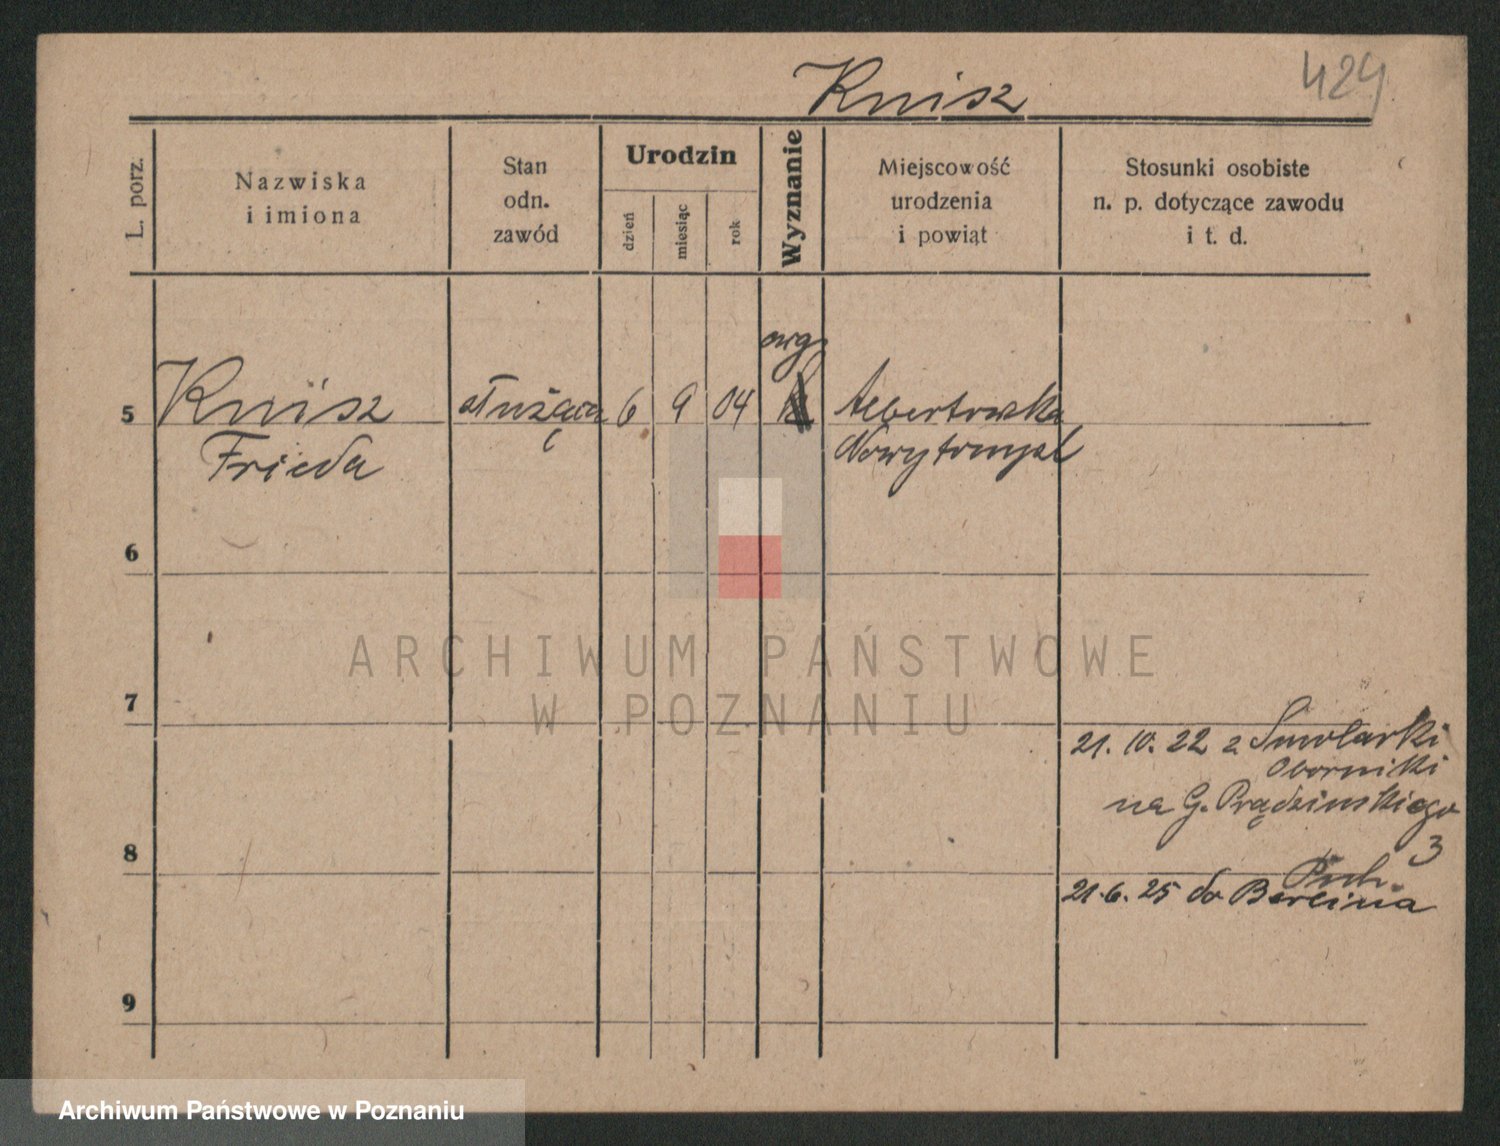 Knisz
429
L. porz.
Nazwiska
i imiona
Stan
odn.
zawód
Urodzin
dzień
miesiąc
rok
Wyznanie
Miejscowość
urodzenia
i powiąt
Stosunki osobiste
n. p. dotyczące zawodu
i t. d.
5
Knisz
Frieda
służąca
6
9
04
Albertowska
Nowytomysl
6
7
21. 10. 22 z Smolarki
Oborniki
na G. Prądzinskiego
3
8
21. 6. 25 do Berlina
9
ARCHIWUM PAŃSTWOWE
W POZNANIU
Archiwum Państwowe w Poznaniu